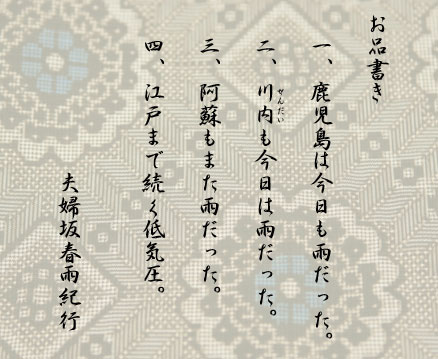 お品書き
一、鹿児島は今日も雨だった。
二、川内も今日は雨だった。
せんだい
三、阿蘇もまた雨だった。
四、江戸まで続く低気圧。
夫婦坂春雨紀行